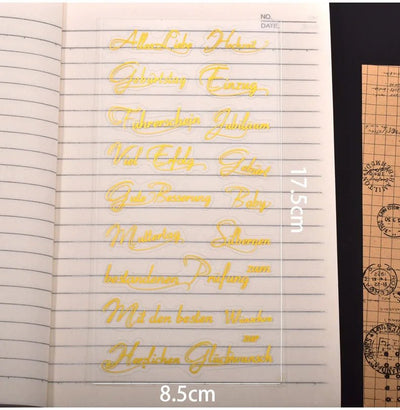 NO.
DATE.
Alles Liebe Hochzeit
Geburtstag Einzug
Führerschein Jubiläum
Viel Erfolg Geburt
Gute Besserung Baby
Muttertag
bestandenen Prüfung zum
Mit den besten Wünschen
zur
Herzlichen Glückwunsch
17.5cm
8.5cm